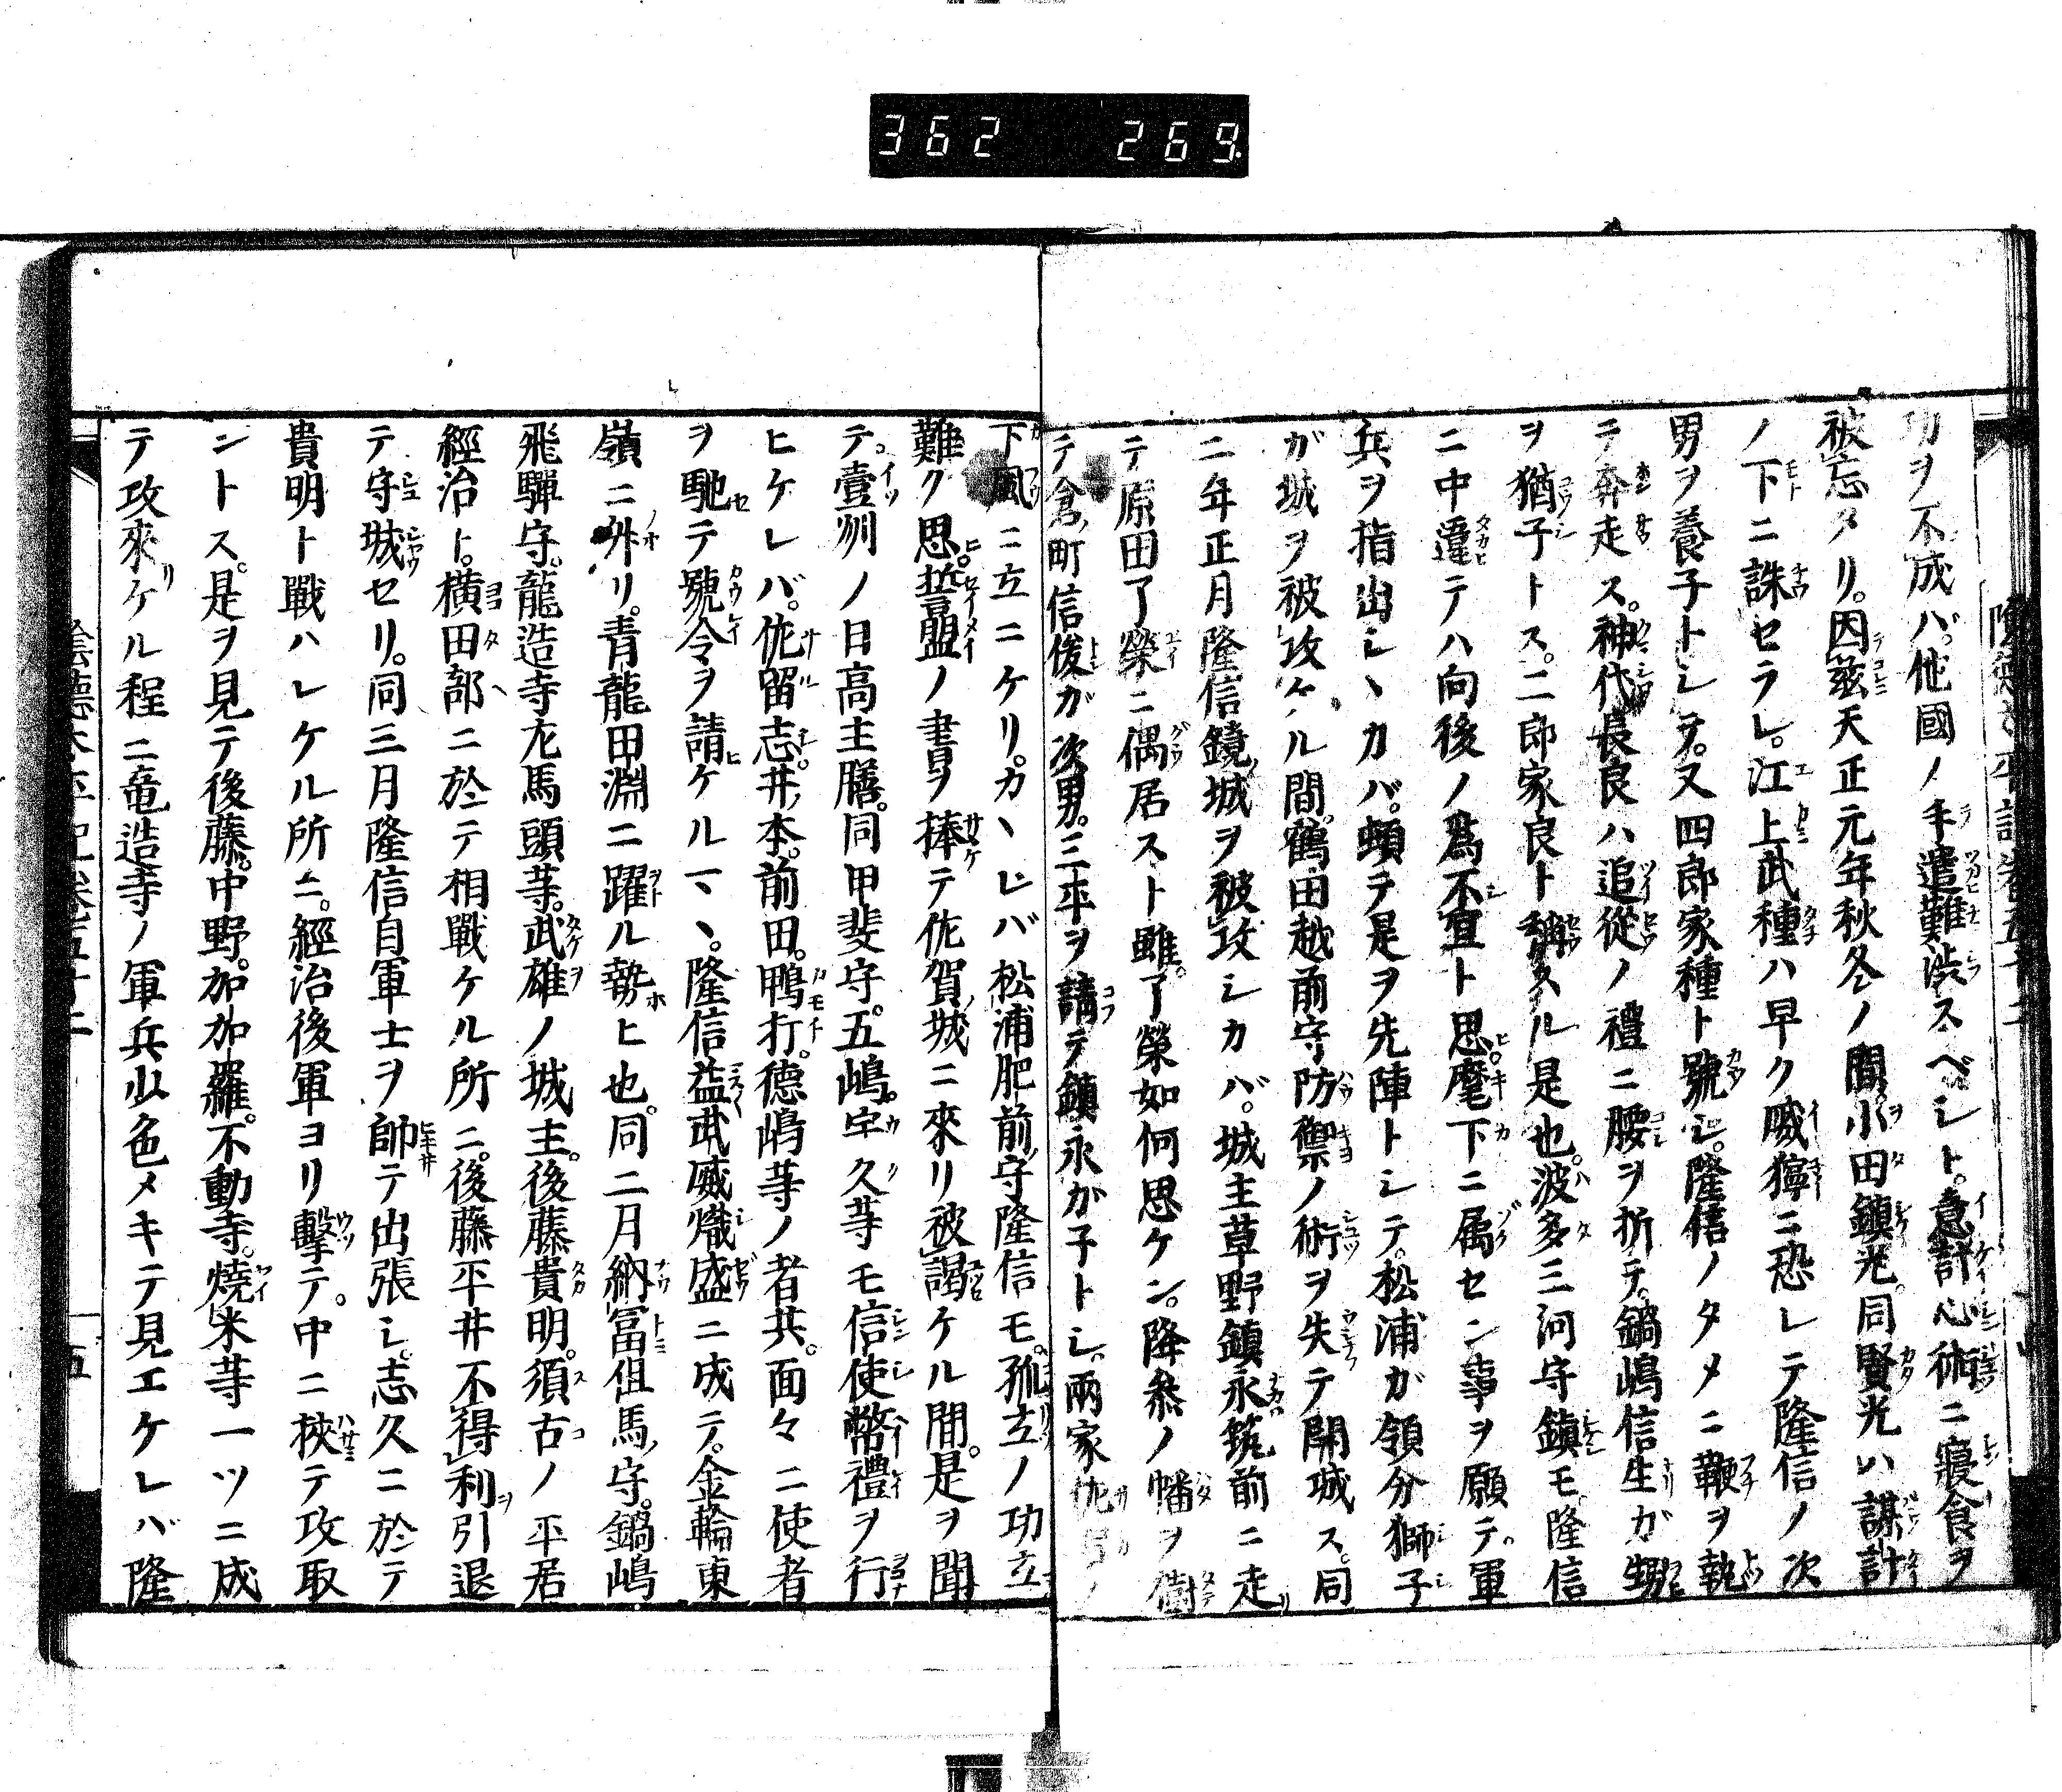 362 269
功ヲ不成バ。他國ノ手遣難渋スベシト。意計心術ニ寢食ヲ
被忘タリ。因茲天正元年秋冬ノ間。小田鎮光。同賢光ハ謀計
ノ下ニ誅セラレ。江上武種ハ早ク威獰ニ恐レテ隆信ノ次
男ヲ養子トシテ。又四郎家種ト號シ。隆信ノタメニ鞭ヲ執
テ奔走ス。神代長良ハ追從ノ禮ニ腰ヲ折テ。鍋嶋信生ガ甥
ヲ猶子トス。二郎家良ト稱スル是也。波多三河守鎮モ隆信
ニ中違テハ向後ノ爲不宜ト思。麾下ニ属セン事ヲ願テ。軍
兵ヲ指出シヽカバ。頓テ是ヲ先陣トシテ。松浦ガ領分獅子
ガ城ヲ被攻ケル間。鶴田越前守防禦ノ術ヲ失テ開城ス。同
二年正月隆信鏡城ヲ被攻シカバ。城主草野鎮永筑前ニ走
テ原田了榮ニ偶居スト雖。了榮如何思ケン。降叅ノ幡ヲ樹
テ倉町信俊ガ次男。三平ヲ請テ鎮永ガ子トシ。兩家
下風ニ立ニケリ。カヽレバ松浦肥前守隆信モ。孤立ノ功立
難ク思。誓盟ノ書ヲ捧テ佐賀城ニ來リ被謁ケル間。是ヲ聞
テ。壹州ノ日高主膳。同甲斐守。五嶋。宇久等モ信使幣禮ヲ行
ヒケレバ。佐留志。井本。前田。鴨打。德嶋等ノ者共。面々ニ使者
ヲ馳テ號令ヲ請ケル一ヽ。隆信益武威熾盛ニ成テ。金輪東
嶺ニ舛リ。青龍田淵ニ躍ル勢ヒ也。同二月納冨但馬守。鍋嶋
飛騨守。龍造寺左馬頭等。武雄ノ城主。後藤貴明。須古ノ平居
經治ト。横田部ニ於テ相戰ケル所ニ。後藤平井不得利引退
テ守城セリ。同三月隆信自軍士ヲ帥テ出張シ。志久ニ於テ
貴明ト戰ハレケル所ニ。經治後軍ヨリ擊テ。中ニ挾テ攻取
ントス。是ヲ見テ後藤。中野。加加羅。不動寺。燒米等一ツニ成
テ攻來ケル程ニ竜造寺ノ軍兵少色メキテ見エケレバ隆